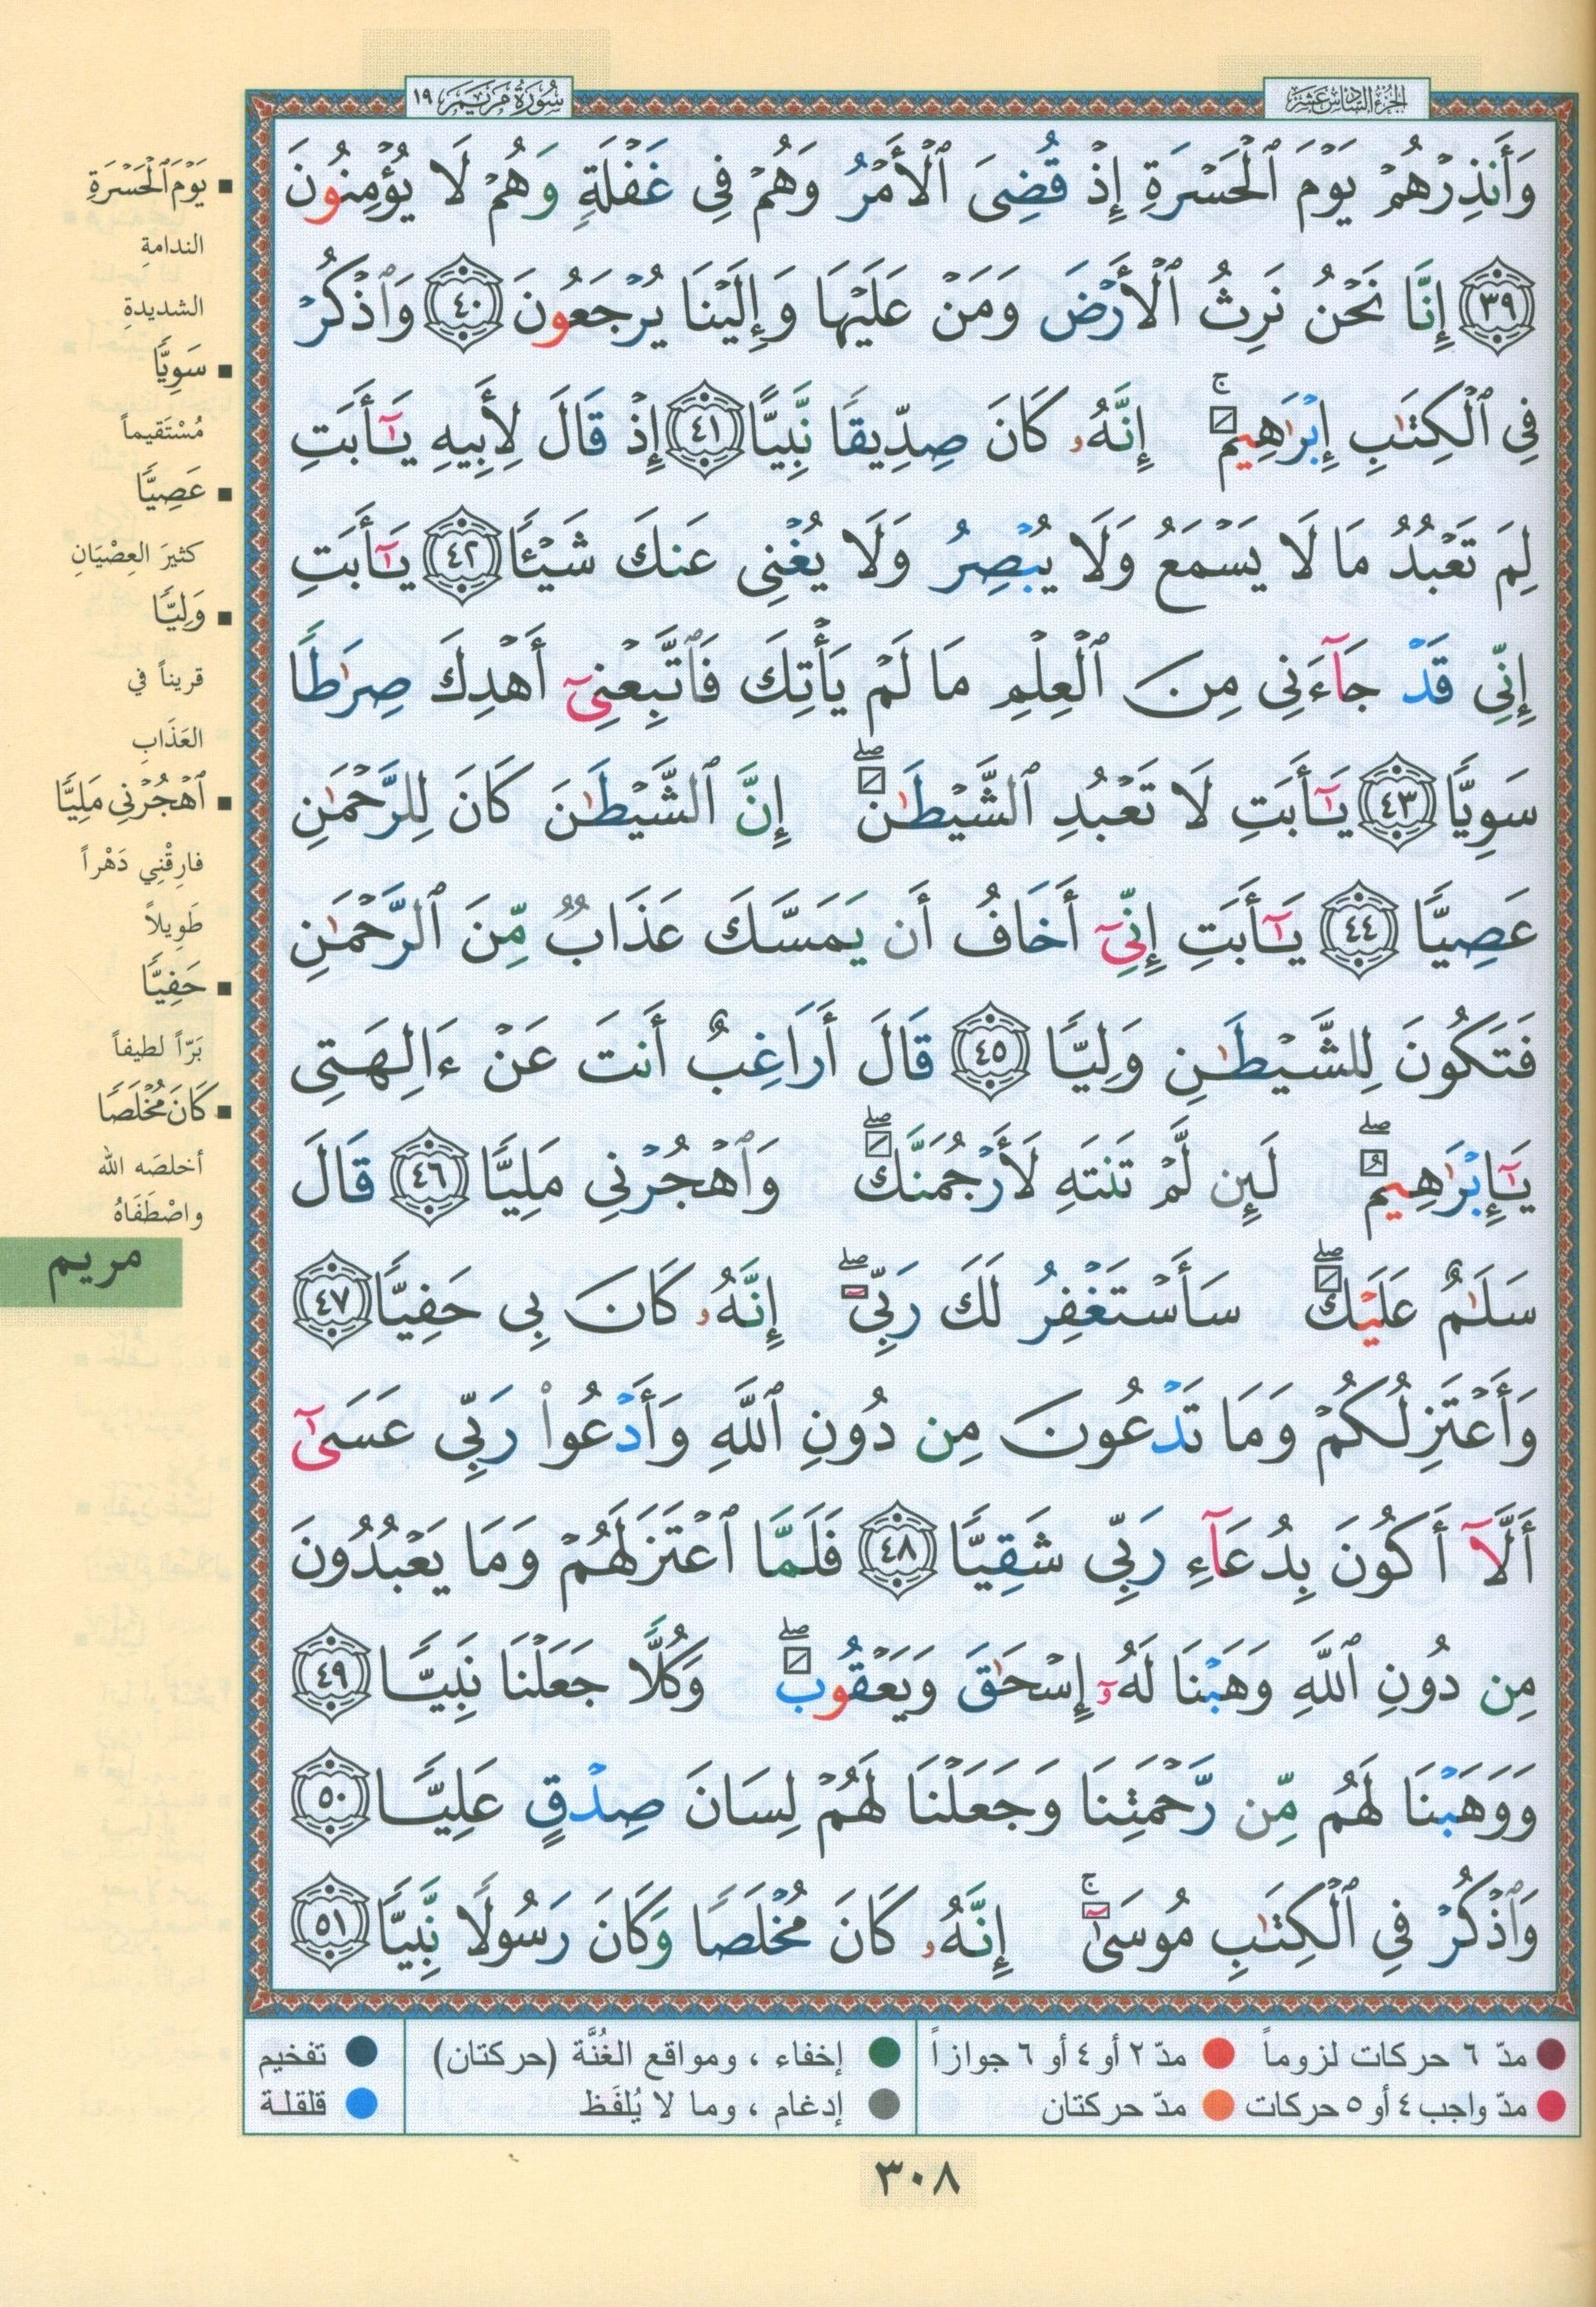 الجزء السادس عشر
سُورَةُ مَرْيَمَ ١٩
وَأَنذِرْهُمْ يَوْمَ ٱلْحَسْرَةِ إِذْ قُضِىَ ٱلْأَمْرُ وَهُمْ فِى غَفْلَةٍ وَهُمْ لَا يُؤْمِنُونَ
٣٩ إِنَّا نَحْنُ نَرِثُ ٱلْأَرْضَ وَمَنْ عَلَيْهَا وَإِلَيْنَا يُرْجَعُونَ ٤٠ وَٱذْكُرْ
فِى ٱلْكِتَٰبِ إِبْرَٰهِيمَ ۚ إِنَّهُۥ كَانَ صِدِّيقًا نَّبِيًّا ٤١ إِذْ قَالَ لِأَبِيهِ يَٰٓأَبَتِ
لِمَ تَعْبُدُ مَا لَا يَسْمَعُ وَلَا يُبْصِرُ وَلَا يُغْنِى عَنكَ شَيْـًٔا ٤٢ يَٰٓأَبَتِ
إِنِّى قَدْ جَآءَنِى مِنَ ٱلْعِلْمِ مَا لَمْ يَأْتِكَ فَٱتَّبِعْنِىٓ أَهْدِكَ صِرَٰطًا
سَوِيًّا ٤٣ يَٰٓأَبَتِ لَا تَعْبُدِ ٱلشَّيْطَٰنَ ۖ إِنَّ ٱلشَّيْطَٰنَ كَانَ لِلرَّحْمَٰنِ
عَصِيًّا ٤٤ يَٰٓأَبَتِ إِنِّىٓ أَخَافُ أَن يَمَسَّكَ عَذَابٌ مِّنَ ٱلرَّحْمَٰنِ
فَتَكُونَ لِلشَّيْطَٰنِ وَلِيًّا ٤٥ قَالَ أَرَاغِبٌ أَنتَ عَنْ ءَالِهَتِى
يَٰٓإِبْرَٰهِيمُ ۖ لَئِن لَّمْ تَنتَهِ لَأَرْجُمَنَّكَ ۖ وَٱهْجُرْنِى مَلِيًّا ٤٦ قَالَ
سَلَٰمٌ عَلَيْكَ ۖ سَأَسْتَغْفِرُ لَكَ رَبِّىٓ ۖ إِنَّهُۥ كَانَ بِى حَفِيًّا ٤٧
وَأَعْتَزِلُكُمْ وَمَا تَدْعُونَ مِن دُونِ ٱللَّهِ وَأَدْعُوا۟ رَبِّى عَسَىٰٓ
أَلَّآ أَكُونَ بِدُعَآءِ رَبِّى شَقِيًّا ٤٨ فَلَمَّا ٱعْتَزَلَهُمْ وَمَا يَعْبُدُونَ
مِن دُونِ ٱللَّهِ وَهَبْنَا لَهُۥٓ إِسْحَٰقَ وَيَعْقُوبَ ۖ وَكُلًّا جَعَلْنَا نَبِيًّا ٤٩
وَوَهَبْنَا لَهُم مِّن رَّحْمَتِنَا وَجَعَلْنَا لَهُمْ لِسَانَ صِدْقٍ عَلِيًّا ٥٠
وَٱذْكُرْ فِى ٱلْكِتَٰبِ مُوسَىٰٓ ۚ إِنَّهُۥ كَانَ مُخْلَصًا وَكَانَ رَسُولًا نَّبِيًّا ٥١
يَوْمَ ٱلْحَسْرَةِ
الندامةِ
الشديدةِ
سَوِيًّا
مُسْتَقيماً
عَصِيًّا
كثيرَ العِصْيَانِ
وَلِيًّا
قريناً في
العَذَابِ
ٱهْجُرْنِي مَلِيًّا
فارِقْنِي دَهْراً
طَوِيلاً
حَفِيًّا
بَرّاً لطيفاً
كَانَ مُخْلَصًا
أخلصَه الله
واصْطَفَاهُ
مريم
مدّ ٦ حركات لزوماً
مدّ ٢ أو ٤ أو ٦ جوازاً
إخفاء ، ومواقع الغُنَّة (حركتان)
تفخيم
مدّ واجب ٤ أو ٥ حركات
مدّ حركتان
إدغام ، وما لا يُلفَظ
قلقلة
٣٠٨